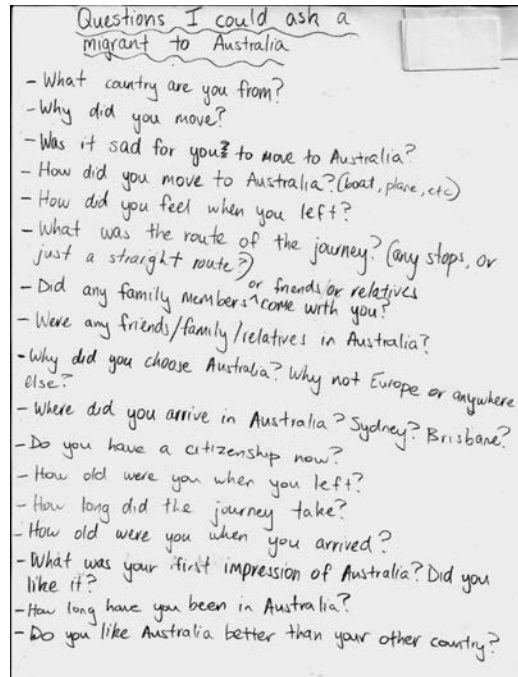 Questions I could ask a
migrant to Australia
- What country are you from?
- Why did you move?
- Was it sad for you? to move to Australia?
- How did you move to Australia? (boat, plane, etc)
- How did you feel when you left?
- What was the route of the journey? (any stops, or
just a straight route?)
- Did any family members ^ or friends/or relatives come with you?
- Were any friends/family/relatives in Australia?
- Why did you choose Australia? Why not Europe or anywhere
else?
- Where did you arrive in Australia? Sydney? Brisbane?
- Do you have a citizenship now?
- How old were you when you left?
- How long did the journey take?
- How old were you when you arrived?
- What was your first impression of Australia? Did you
like it?
- How long have you been in Australia?
- Do you like Australia better than your other country?